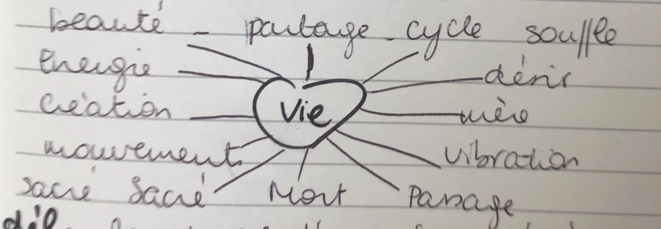 beauté - partage - cycle souffle
Energie désir
Création Vie mère
mouvement vibration
sacré Sacré Mort Passage